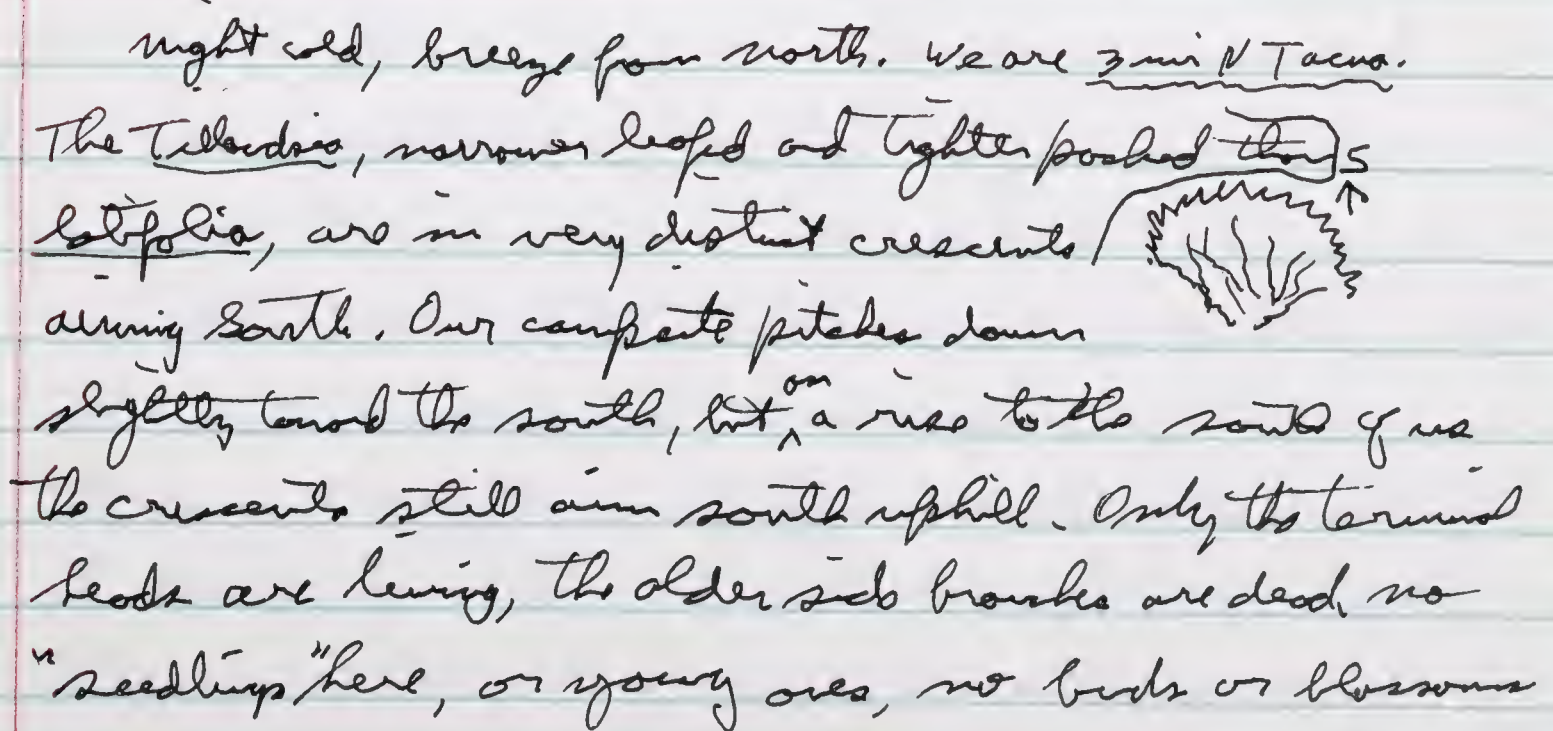 night cold, breeze from north. We are 3 mi N Tacna.
The Tillandsia, narrower leafed and tighter packed than S
latifolia, are in very distinct crescents
aiming South. Our campsite pitches down
slightly toward the south, but on a rise to the south of us
the crescents still aim south uphill. Only the terminal
heads are living, the older side branches are dead, no
"seedlings" here, or young ones, no buds or blossoms